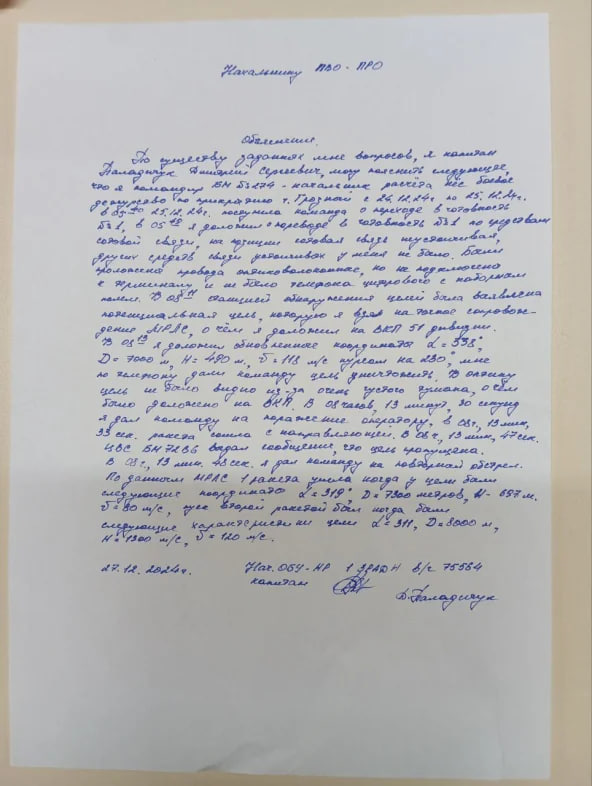 Начальнику ПВО - ПРО
Объяснение.
По существу заданных мне вопросов, я капитан
Паладичук Дмитрий Сергеевич, могу пояснить следующее,
что я командир БМ 73274 - начальник расчёта нёс боевое
дежурство по прикрытию г. Грозный с 24.12.24г. по 25.12.24г.
в 05 40 25.12.24г. поступила команда о переводе в готовность
№1, в 05 я доложил о переводе в готовность №1 по средствам
сотовой связи, на позиции сотовая связь неустойчивая,
других средств связи устойчивых у меня не было. Были
проложена провода оптиковолоконное, но не подключена
к терминалу и не было телефона цифрового с наборным
полем. В 08 11 станцией обнаружения целей была заявлена
потенциальная цель, которую я взял на точное сопровож-
дение МРЛС, о чём я доложил на ВКП 51 дивизии.
В 08 13 я доложил обновленные координаты α = 338°,
D = 7000 м, H = 480 м, v = 118 м/с курсом на 230°, мне
по телефону дали команду цель уничтожить. В оптику
цель не было видно из-за очень густого тумана, о чём
было доложено на ВКП. В 08 часов, 13 минут, 30 секунд
я дал команду на поражение оператору, в 08ч, 13 мин,
33 сек. ракета сошла с направляющей. В 08ч, 13 мин, 47 сек.
ЦВС БМ 72В6 выдал сообщение, что цель пропущена.
В 08ч, 13 мин. 48 сек. я дал команду на повторный обстрел.
По данным МРЛС 1 ракета ушла когда у цели были
следующие координаты α = 319°, D = 7300 метров, H - 687 м.
v = 80 м/с, пуск второй ракетой был когда были
следующие характеристики цели α = 311, D = 8000 м,
H = 1300 м/с, v = 120 м/с.
27.12.2024г. Нач. ОБУ-НР 1 ЗРАДН в/ч 75584
капитан
Д. Паладичук